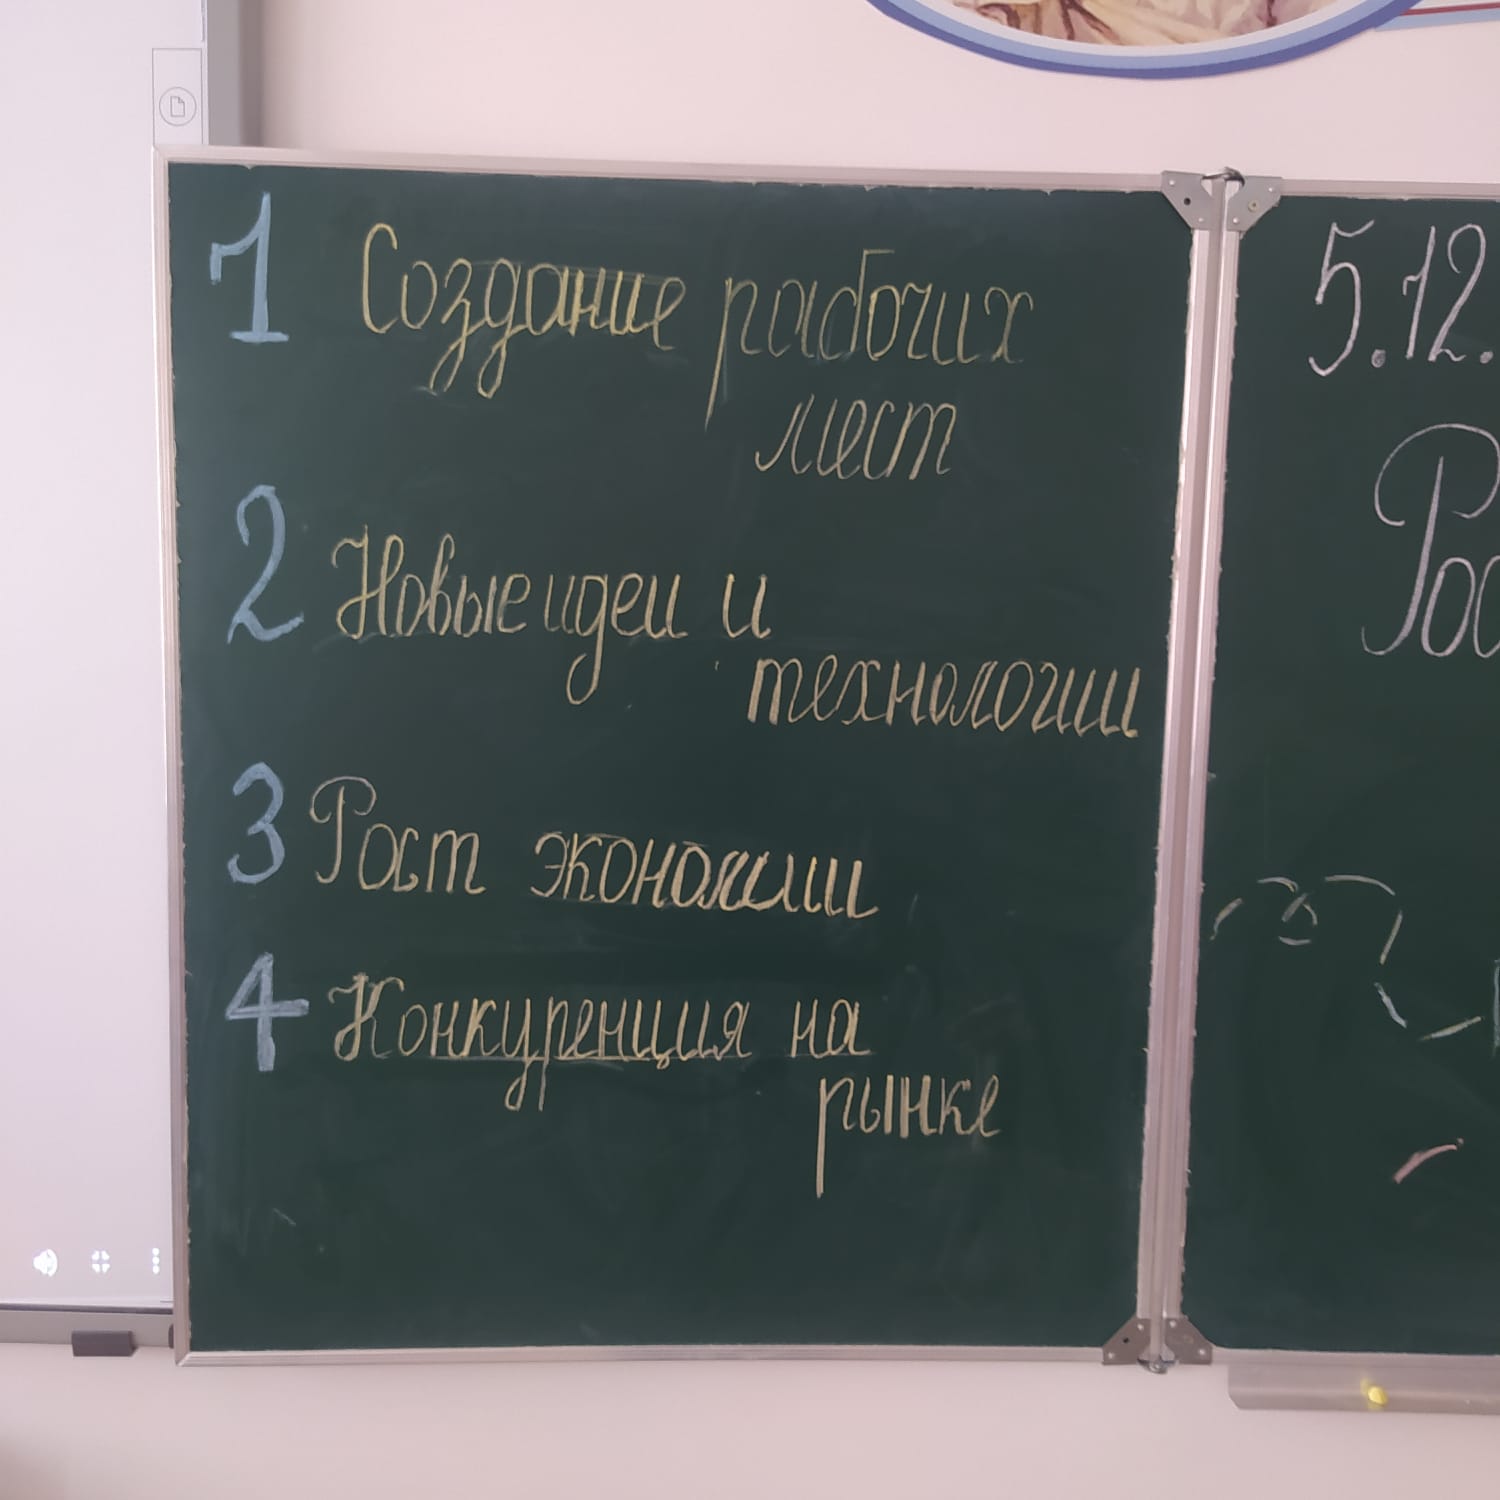 1 Создание рабочих
мест
2 Новые идеи и
технологии
3 Рост экономии
4 Конкуренция на
рынке
5.12.